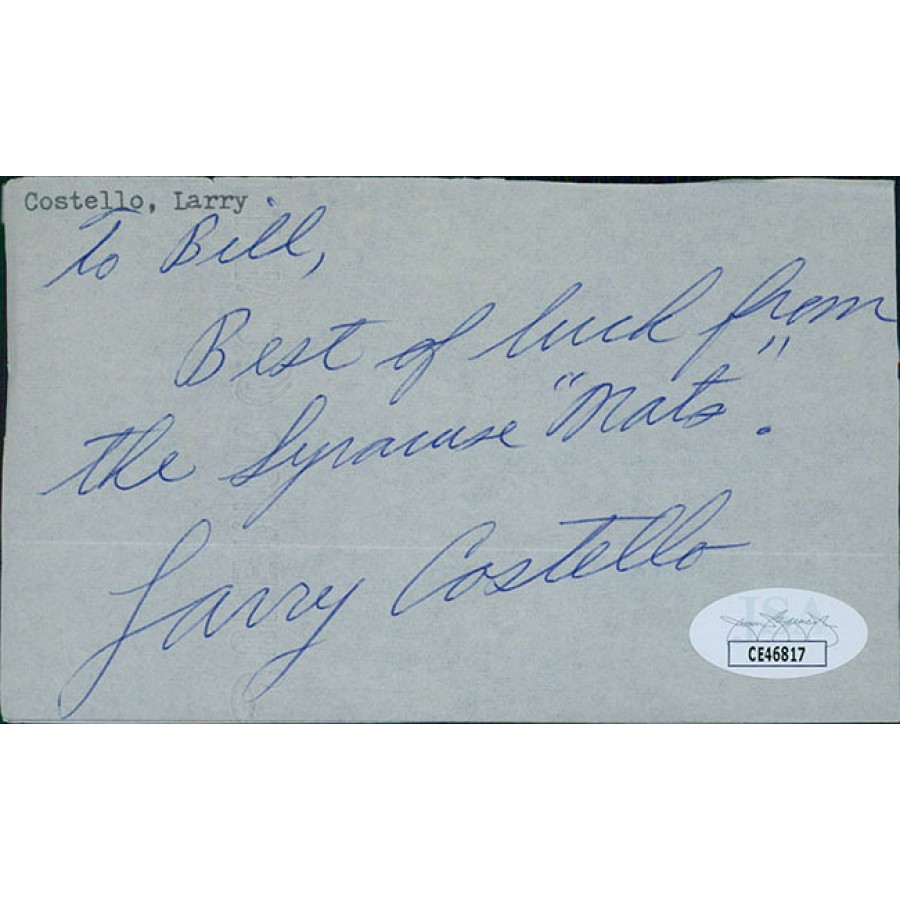 Costello, Larry
To Bill,
Best of luck from
the Syracuse "Nats".
Larry Costello
JSA
CE46817